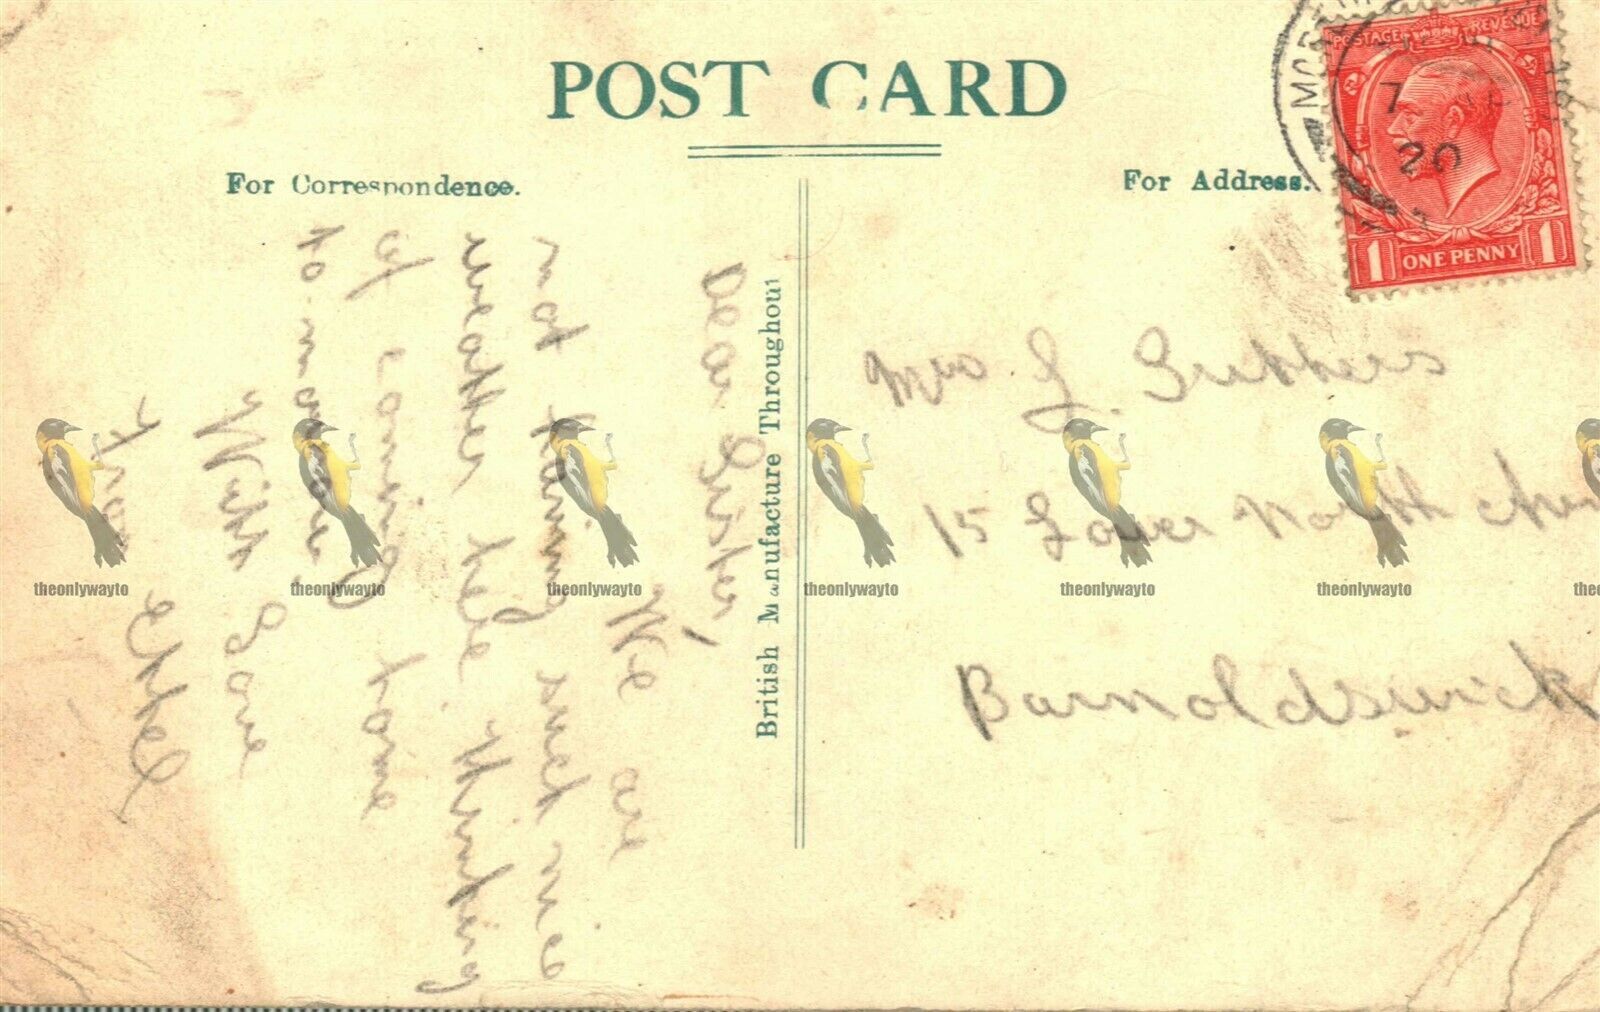 POST CARD
For Correspondence.
For Address.
POSTAGE REVENUE
7
20
1 ONE PENNY 1
British Manufacture Throughout
Dear Sister,
We are
not having such nice
weather here thinking
of coming home
to-morrow
With Love
from Ethel
Mrs. J.
15 Lower North
Barnoldswick
theonlywayto theonlywayto theonlywayto theonlywayto theonlywayto theonlywayto